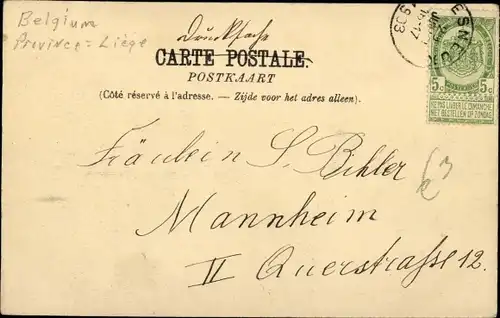 Belgium
Province = Liége
Drucksache
CARTE POSTALE.
POSTKAART
(Côté réservé à l'adresse. — Zijde voor het adres alleen).
5c 5c
NE PAS LIVRER LE DIMANCHE
NIET BESTELLEN OP ZONDAG
Fräulein S. Bihler
Mannheim
II Querstraße 12.